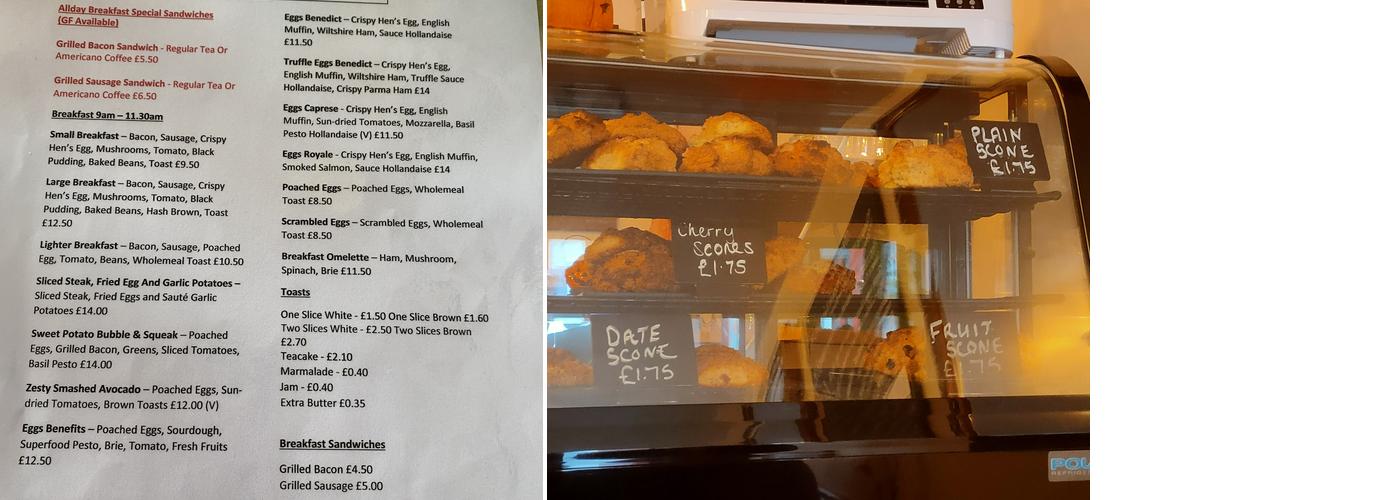 Allday Breakfast Special Sandwiches
(GF Available)
Grilled Bacon Sandwich - Regular Tea Or
Americano Coffee £5.50
Grilled Sausage Sandwich - Regular Tea Or
Americano Coffee £6.50
Breakfast 9am – 11.30am
Small Breakfast – Bacon, Sausage, Crispy
Hen's Egg, Mushrooms, Tomato, Black
Pudding, Baked Beans, Toast £9.50
Large Breakfast – Bacon, Sausage, Crispy
Hen's Egg, Mushrooms, Tomato, Black
Pudding, Baked Beans, Hash Brown, Toast
£12.50
Lighter Breakfast – Bacon, Sausage, Poached
Egg, Tomato, Beans, Wholemeal Toast £10.50
Sliced Steak, Fried Egg And Garlic Potatoes –
Sliced Steak, Fried Eggs and Sauté Garlic
Potatoes £14.00
Sweet Potato Bubble & Squeak – Poached
Eggs, Grilled Bacon, Greens, Sliced Tomatoes,
Basil Pesto £14.00
Zesty Smashed Avocado – Poached Eggs, Sun-
dried Tomatoes, Brown Toasts £12.00 (V)
Eggs Benefits – Poached Eggs, Sourdough,
Superfood Pesto, Brie, Tomato, Fresh Fruits
£12.50
Eggs Benedict – Crispy Hen's Egg, English
Muffin, Wiltshire Ham, Sauce Hollandaise
£11.50
Truffle Eggs Benedict – Crispy Hen's Egg,
English Muffin, Wiltshire Ham, Truffle Sauce
Hollandaise, Crispy Parma Ham £14
Eggs Caprese - Crispy Hen's Egg, English
Muffin, Sun-dried Tomatoes, Mozzarella, Basil
Pesto Hollandaise (V) £11.50
Eggs Royale - Crispy Hen's Egg, English Muffin,
Smoked Salmon, Sauce Hollandaise £14
Poached Eggs – Poached Eggs, Wholemeal
Toast £8.50
Scrambled Eggs – Scrambled Eggs, Wholemeal
Toast £8.50
Breakfast Omelette – Ham, Mushroom,
Spinach, Brie £11.50
Toasts
One Slice White - £1.50 One Slice Brown £1.60
Two Slices White - £2.50 Two Slices Brown
£2.70
Teacake - £2.10
Marmalade - £0.40
Jam - £0.40
Extra Butter £0.35
Breakfast Sandwiches
Grilled Bacon £4.50
Grilled Sausage £5.00
PLAIN
SCONE
£1.75
Cherry
Scones
£1.75
DATE
SCONE
£1.75
FRUIT
SCONE
£1.75